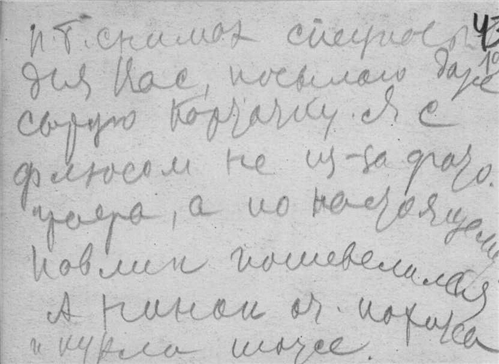 и т. снимах специально
для Вас, посылаю даже
сырую карточку. Я с
флюсом не из-за фото
графа, а по настоящему
Павлик пошевелился
А Нинок оч. похожа
и кукла тоже